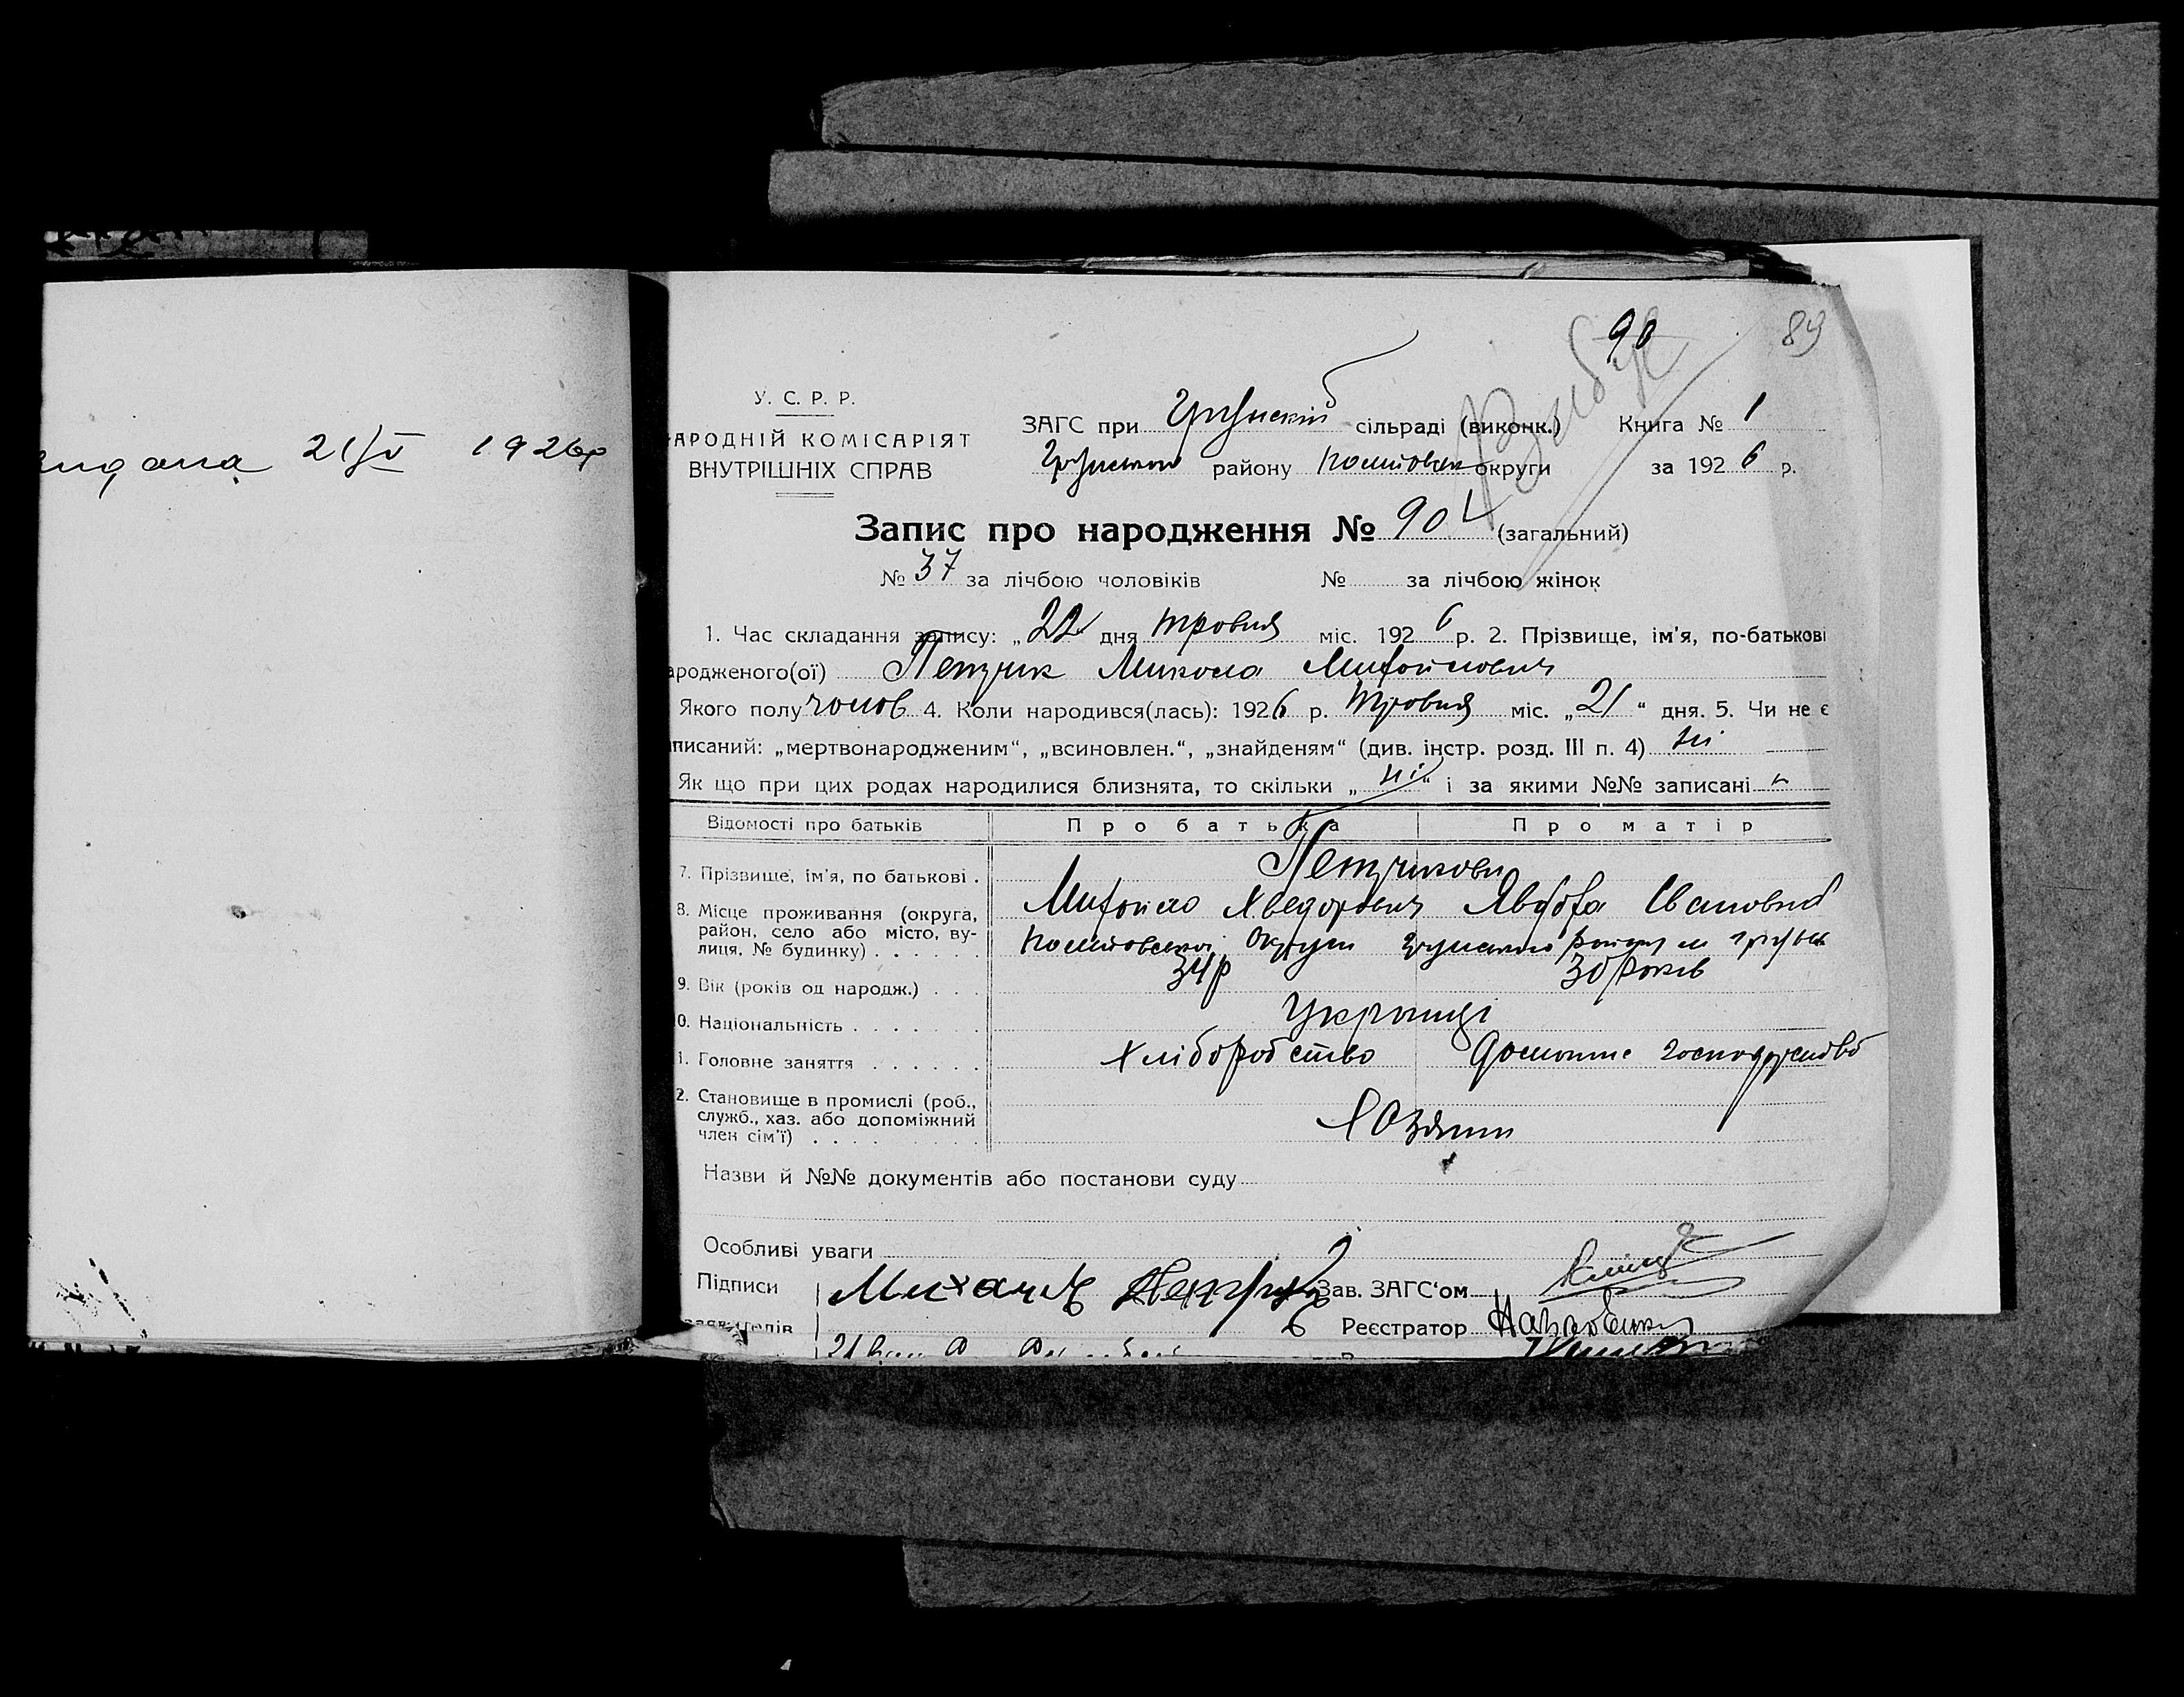 21/V 1926р
90
89
У. С. Р. Р.
АРОДНІЙ КОМІСАРІЯТ
ВНУТРІШНІХ СПРАВ
ЗАГС при сільраді (виконк.) Книга № 1
району округи за 1926 р.
Запис про народження № 90 (загальний)
№ 37 за лічбою чоловіків № за лічбою жінок
1. Час складання запису: „22 дня травня міс. 1926 р. 2. Прізвище, ім'я, по-батькові
ародженого(ої) Петрик Микола Михойлович
Якого полу чолов 4. Коли народився(лась): 1926 р. Травня міс. „21“ дня. 5. Чи не є
писаний: „мертвонародженим“, „всиновлен.“, „знайденям“ (див. інстр. розд. III п. 4) ні
Як що при цих родах народилися близнята, то скільки „ні“ і за якими №№ записані
Відомості про батьків Про батька Про матір
7. Прізвище, ім'я, по батькові . Петрикови
Михойло Хведорович Явдоха Івановна
8. Місце проживання (округа, район, село або місто, вулиця, № будинку) . . . . . . Округи району
9. Вік (років од народж.) . . . 34р 30 років
0. Національність . . . . . . Українці
1. Головне заняття . . . . . . Хліборобство Домашнє господарство
2. Становище в промислі (роб.,
служб., хаз. або допоміжний
член сім'ї) . . . . Хозяини
Назви й №№ документів або постанови суду
Особливі уваги
Підписи Михаил Петрик Зав. ЗАГС'ом
Реєстратор